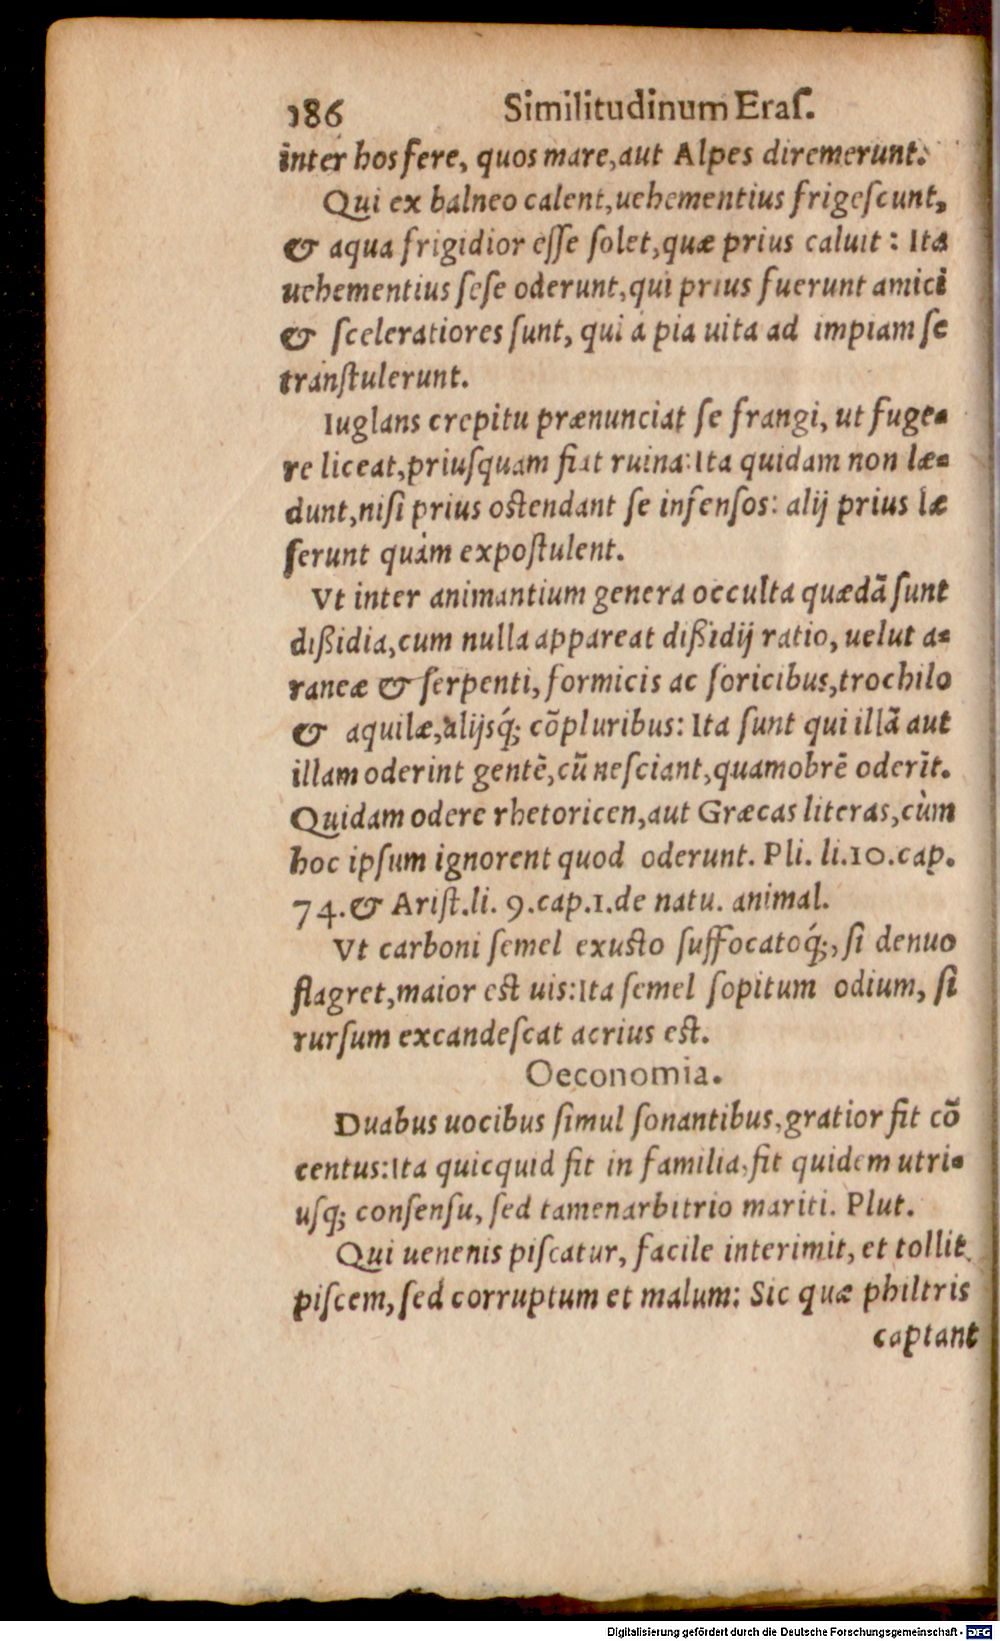 186 Similitudinum Eraſ.
inter hos fere, quos mare, aut Alpes diremerunt.
Qui ex balneo calent, uehementius frigeſcunt,
& aqua frigidior eſſe ſolet, quæ prius caluit: Ita
uehementius ſeſe oderunt, qui prius fuerunt amici
& ſceleratiores ſunt, qui á pia uita ad impiam ſe
tranſtulerunt.
Iuglans crepitu prænunciat ſe frangi, ut fuge-
re liceat, priuſquam fiat ruina: Ita quidam non læ-
dunt, niſi prius oſtendant ſe infenſos: alij prius læ
ſerunt quàm expoſtulent.
Vt inter animantium genera occulta quædã ſunt
dißidia, cum nulla appareat dißidij ratio, uelut a-
raneæ & ſerpenti, formicis ac ſoricibus, trochilo
& aquilæ, alijsq́; cõpluribus: Ita ſunt qui illã aut
illam oderint gentẽ, cũ neſciant, quamobrẽ oderĩt.
Quidam odere rhetoricen, aut Græcas literas, cùm
hoc ipſum ignorent quod oderunt. Pli. li. 10. cap.
74. & Ariſt. li. 9. cap. 1. de natu. animal.
Vt carboni ſemel exuſto ſuffocatoq́;, ſi denuo
flagret, maior eſt uis: Ita ſemel ſopitum odium, ſi
rurſum excandeſcat acrius eſt.
Oeconomia.
Duabus uocibus ſimul ſonantibus, gratior fit cõ
centus: Ita quicquid fit in familia, fit quidem utri-
uſq; conſenſu, ſed tamen arbitrio mariti. Plut.
Qui uenenis piſcatur, facile interimit, et tollit
piſcem, ſed corruptum et malum: Sic quæ philtris
captant
Digitalisierung gefördert durch die Deutsche Forschungsgemeinschaft - DFG